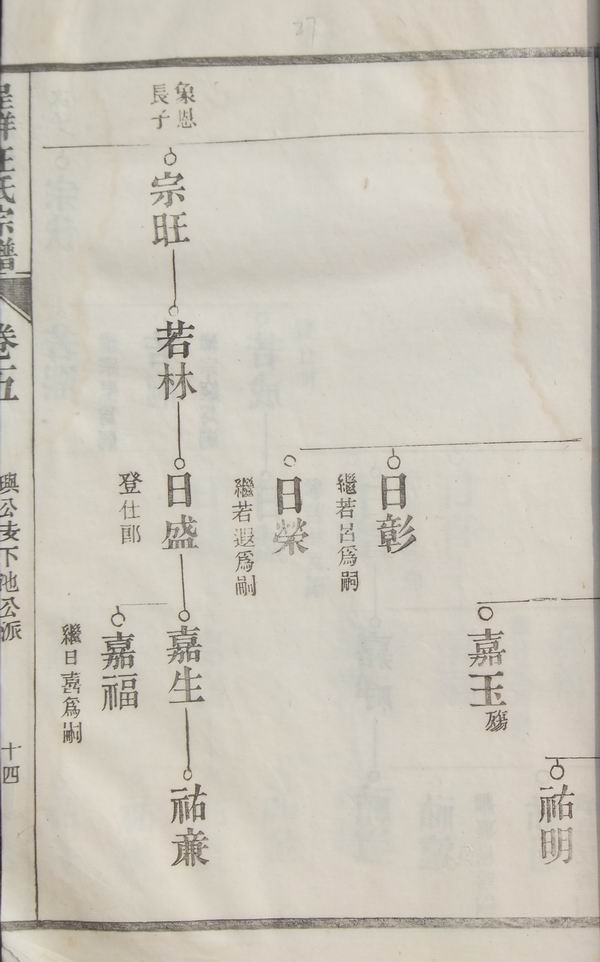 27
象恩
長子
宗旺
若林
日彰
繼若呂為嗣
日榮
繼若遐為嗣
日盛
登仕郎
嘉玉
殤
嘉生
嘉福
繼日喜為嗣
祐明
祐廉
汪氏宗譜
卷五
公派
十四